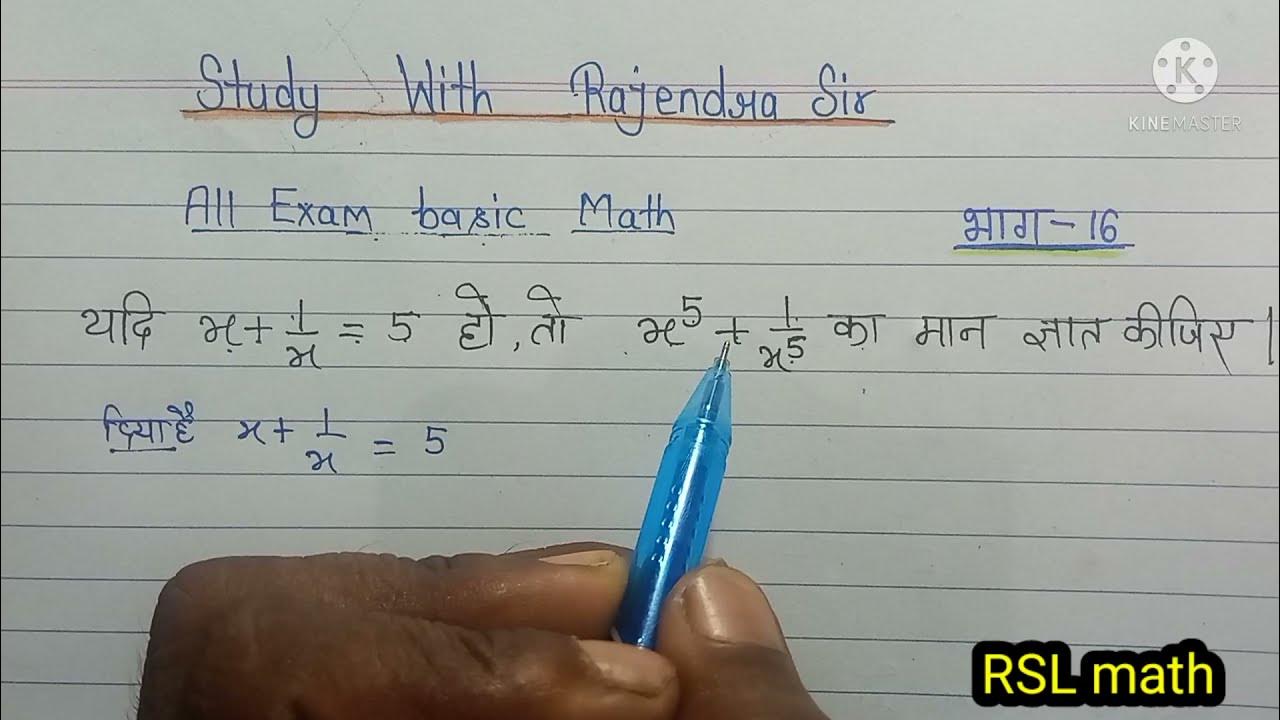 Study With Rajendra Sir
KINEMASTER
All Exam basic Math
भाग-16
यदि x + 1/x = 5 हो, तो x⁵ + 1/x⁵ का मान ज्ञात कीजिए।
दिया है x + 1/x = 5
RSL math